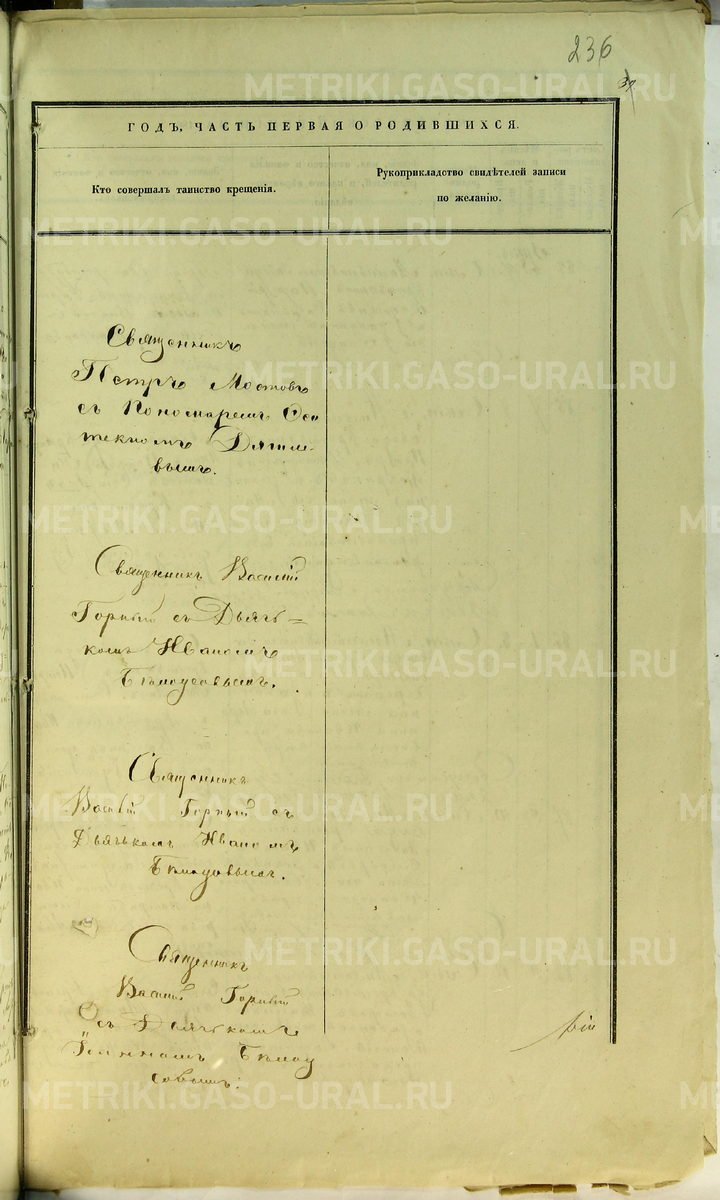 236
METRIKI.GASO-URAL.RU
ГОДЪ, ЧАСТЬ ПЕРВАЯ О РОДИВШИХСЯ.
Кто совершалъ таинство крещенія.
Рукоприкладство свидѣтелей записи
по желанію.
METRIKI.GASO-URAL.RU
Священникъ
Петръ Мостовъ
METRIKI.GASO-URAL.RU
съ Пономаремъ
вымъ.
METRIKI.GASO-URAL.RU
Священникъ Василій
Горный съ Дьячь=
комъ Иваномъ
METRIKI.GASO-URAL.RU
Священникъ
Василій Горный съ
METRIKI.GASO-URAL.RU
Дьячькомъ Иваномъ
Священникъ
METRIKI.GASO-URAL.RU
Василій Горный
съ Дьячькомъ
совымъ.
METRIKI.GASO-URAL.RU